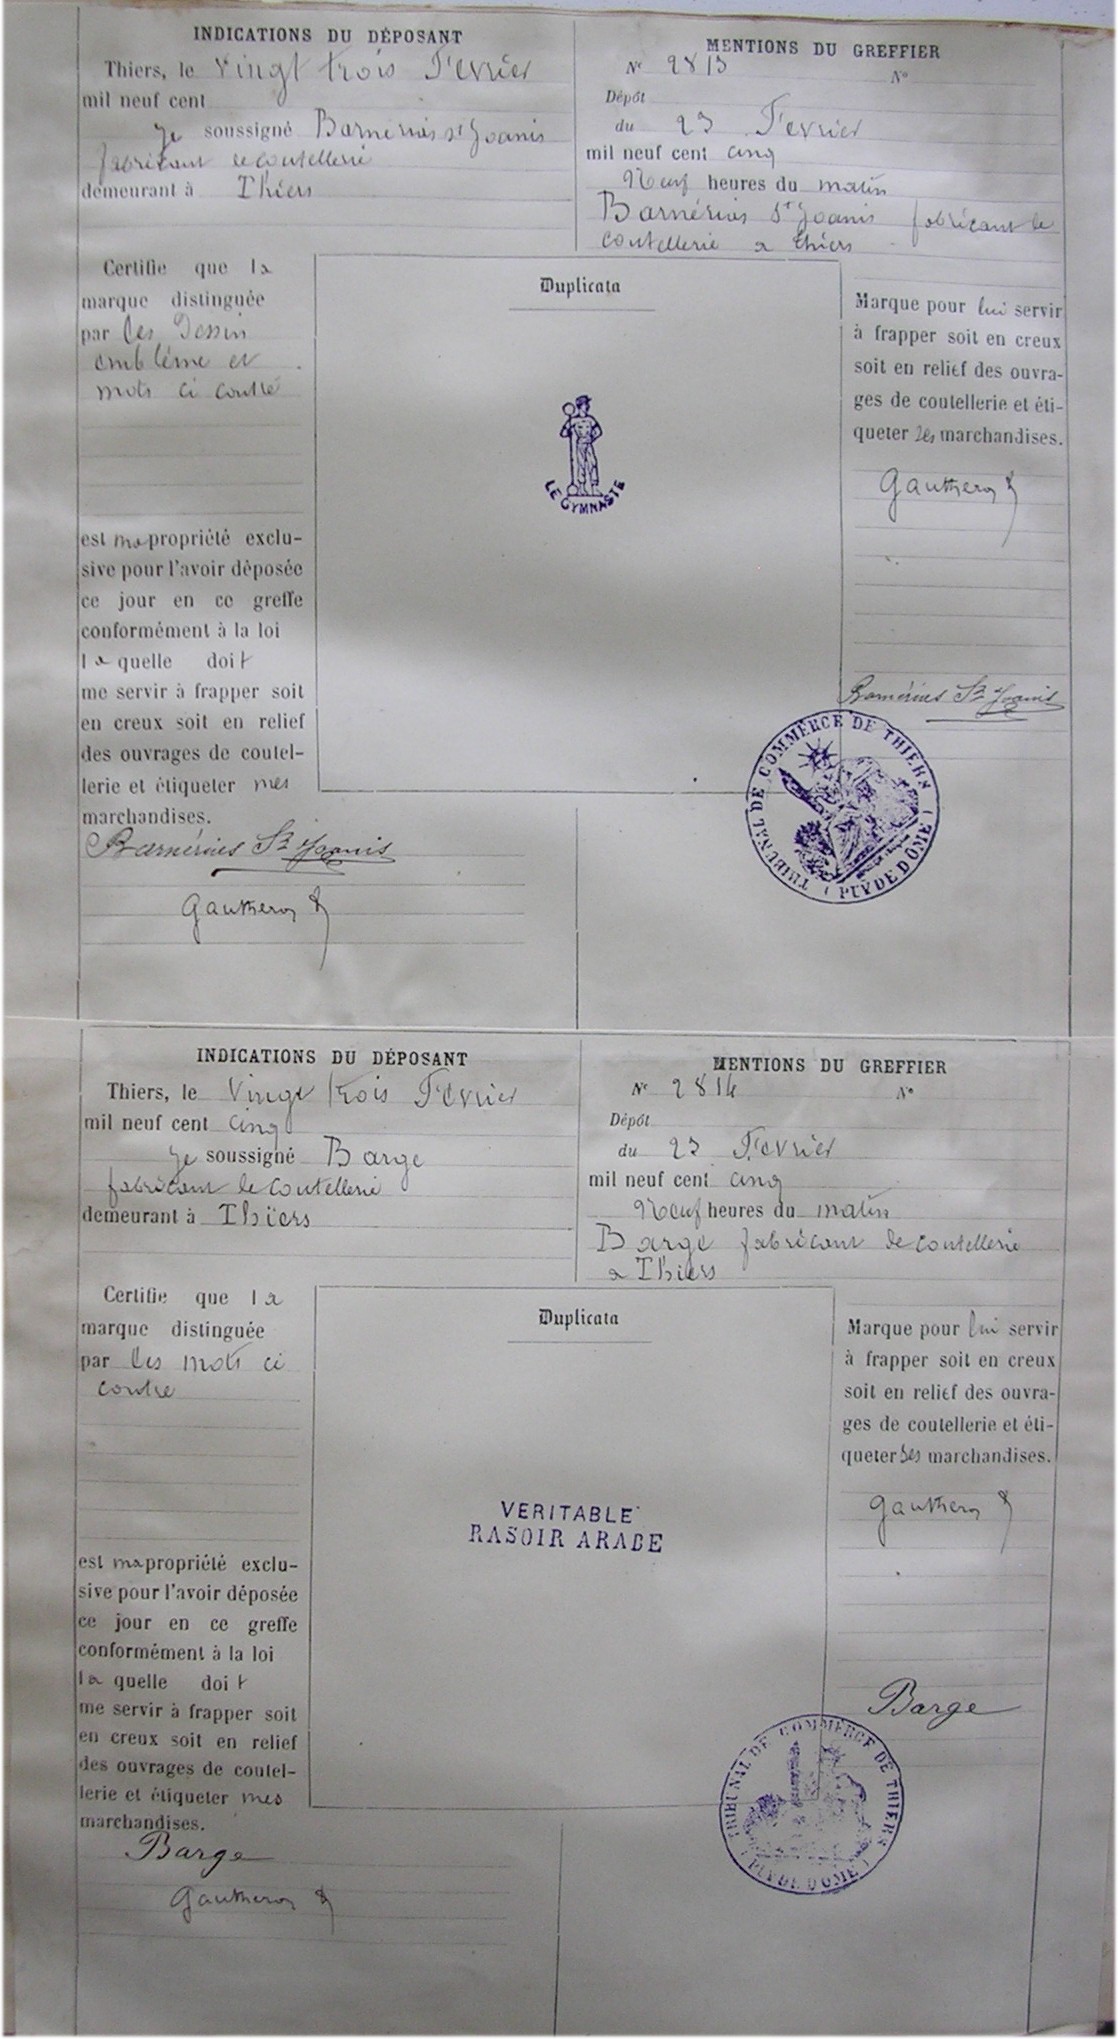 INDICATIONS DU DÉPOSANT
Thiers, le Vingt trois Fevrier
mil neuf cent
Je soussigné Barnérias St Joanis
fabricant de coutellerie
demeurant à Thiers
MENTIONS DU GREFFIER
N° 2813 N°
Dépôt
du 23 Fevrier
mil neuf cent cinq
Neuf heures du matin
Barnérias St Joanis fabricant de
coutellerie a thiers
Certifie que la
marque distinguée
par les Dessin
emblème et
mots ci contre
est ma propriété exclu-
sive pour l'avoir déposée
ce jour en ce greffe
conformément à la loi
la quelle doit
me servir à frapper soit
en creux soit en relief
des ouvrages de coutel-
lerie et étiqueter mes
marchandises.
Barnérias St Joanis
Gautheron
Duplicata
LE GYMNASTE
Marque pour lui servir
à frapper soit en creux
soit en relief des ouvra-
ges de coutellerie et éti-
queter ses marchandises.
Gautheron
Barnérias St Joanis
TRIBUNAL DE COMMERCE DE THIERS
(PUY DE DÔME)
INDICATIONS DU DÉPOSANT
Thiers, le Vingt trois Fevrier
mil neuf cent cinq
Je soussigné Barge
fabricant de coutellerie
demeurant à Thiers
MENTIONS DU GREFFIER
N° 2814 N°
Dépôt
du 23 Fevrier
mil neuf cent cinq
Neuf heures du matin
Barge fabricant de coutellerie
a Thiers
Certifie que la
marque distinguée
par les mots ci
contre
est ma propriété exclu-
sive pour l'avoir déposée
ce jour en ce greffe
conformément à la loi
la quelle doit
me servir à frapper soit
en creux soit en relief
des ouvrages de coutel-
lerie et étiqueter mes
marchandises.
Barge
Gautheron
Duplicata
VERITABLE
RASOIR ARABE
Marque pour lui servir
à frapper soit en creux
soit en relief des ouvra-
ges de coutellerie et éti-
queter ses marchandises.
Gautheron
Barge
TRIBUNAL DE COMMERCE DE THIERS
(PUY DE DOME)